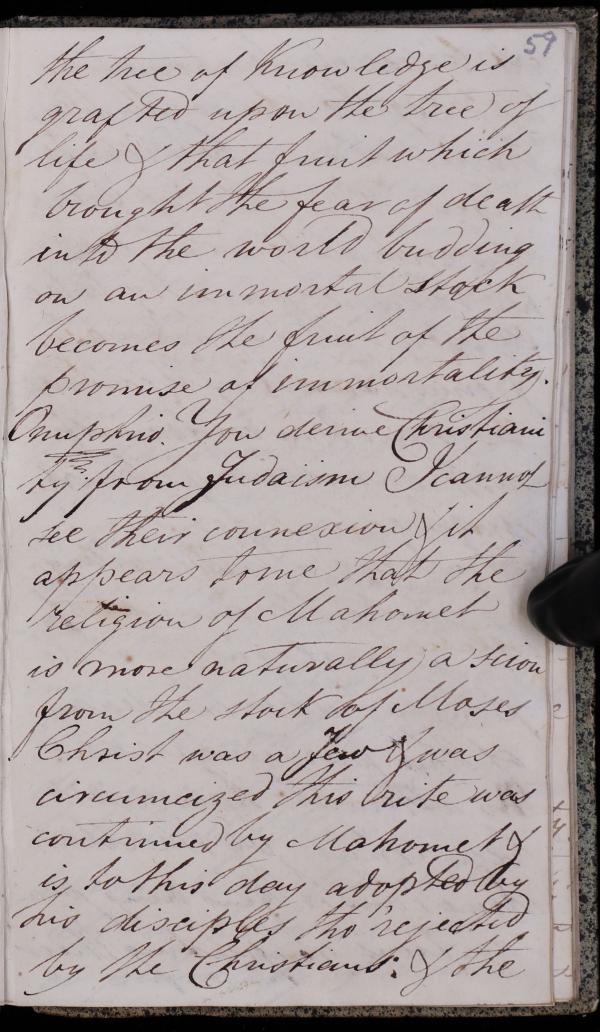 59
the tree of Knowledge is
grafted upon the tree of
life & that fruit which
brought the fear of death
into the world budding
on an immortal stock
becomes the fruit of the
promise of immortality.
Onuphrio. You derive Christiani
ty from Judaism I cannot
see their connexion & it
appears to me that the
religion of Mahomet
is more naturally a scion
from the stock of Moses
Christ was a Jew & was
circumcized this rite was
continued by Mahomet &
is to this day adopted by
his disciples tho' rejected
by the Christians. & the